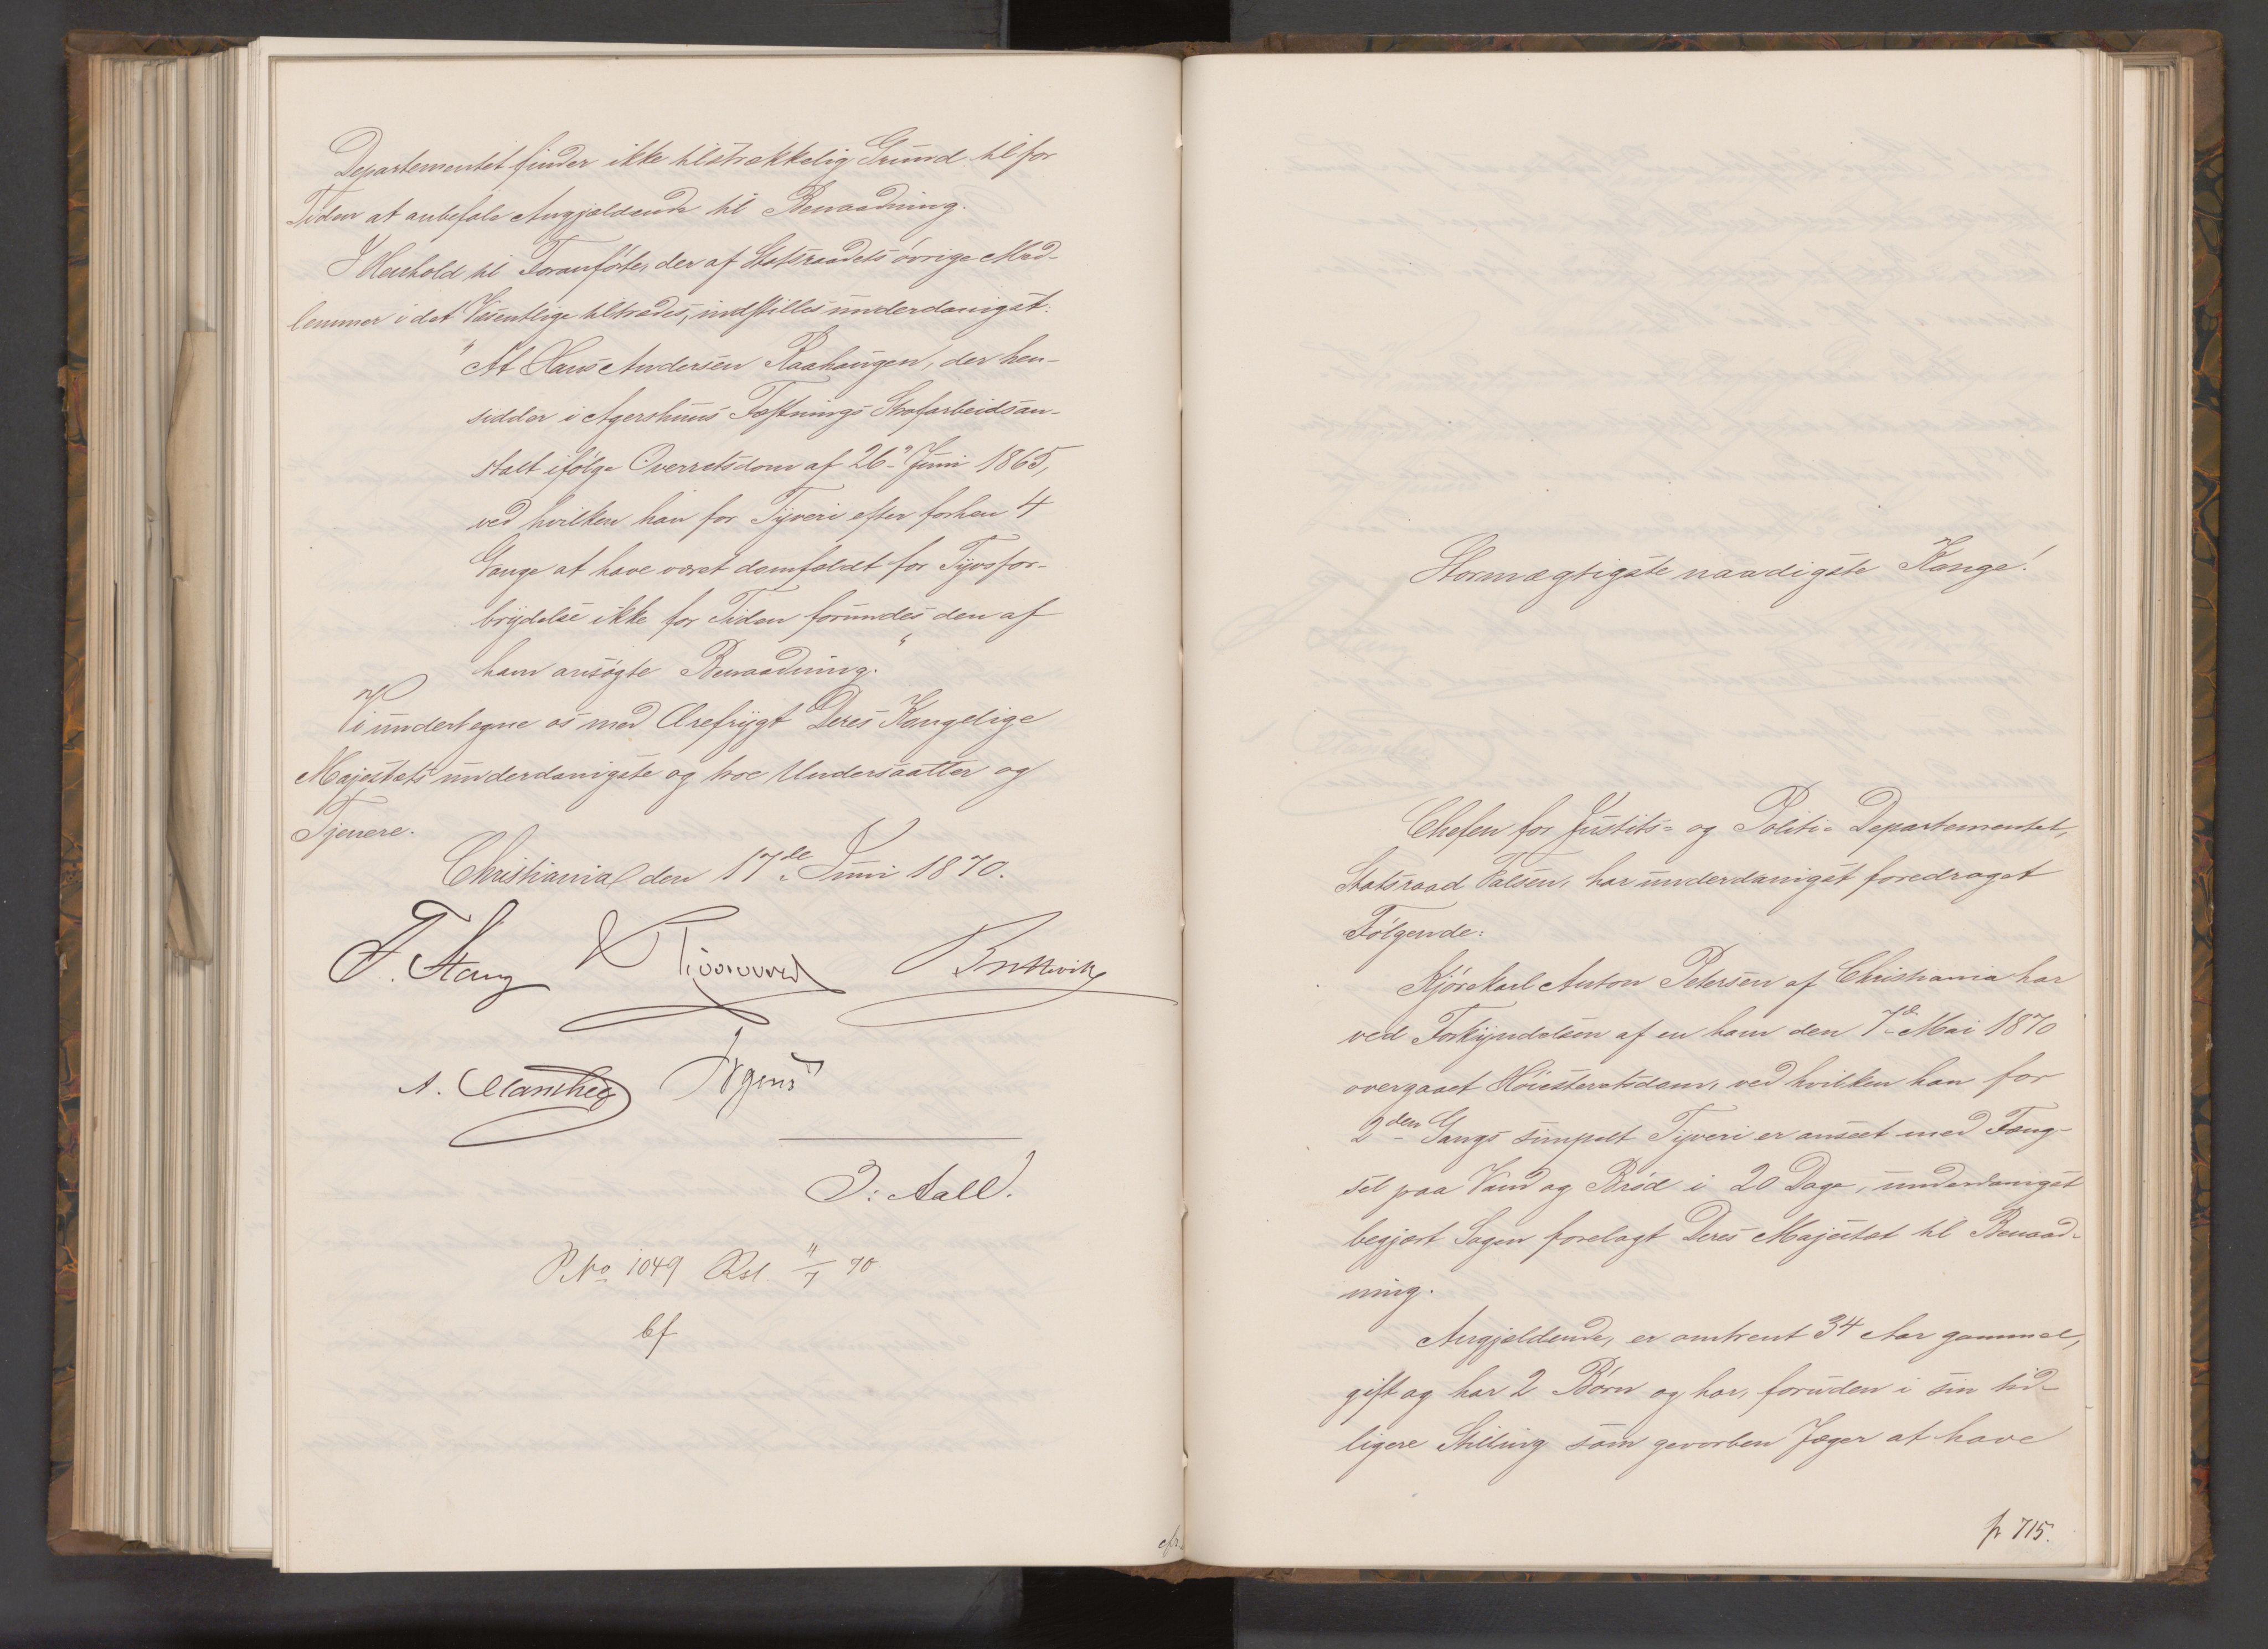 Departementet finder ikke tilstrækkelig Grund til for
Tiden at anbefale Angjældende til Benaadning.
I Henhold til Foranførte, der af Statsraadets øvrige Med-
lemmer i det Væsentlige tiltrædes, indstilles underdanigst:
"At Hans Andersen Raahaugen, der hen-
sidder i Agershuus Fæstnings Strafarbeidsan-
stalt ifølge Overretsdom af 26" Juni 1865,
ved hvilken han for Tyveri efter forhen 4
Gange at have været domfældt for Tyvsfor-
brydelse ikke for Tiden forundes den af
ham ansøgte Benaadning."
Vi undertegne os med Ærefrygt Deres Kongelige
Majestæts underdanigste og troe Undersaatter og
Tjenere.
Christiania den 17de Juni 1870.
F. Stang
Bretteville
A. Manthey Irgens
J: Aall.
P. No 1049 Rsl. 11/7 70
bf
Stormægtigste naadigste Konge!
Chefen for Justits- og Politi-Departementet,
Statsraad Falsen, har underdanigst foredraget
Følgende:
Kjørekarl Anton Petersen af Christiania har
ved Forkyndelsen af en ham den 7de Mai 1870
overgaaet Høiesteretsdom, ved hvilken han for
2den Gangs simpelt Tyveri er anseet med Fæng-
sel paa Vand og Brød i 20 Dage, underdanigst
begjært Sagen forelagt Deres Majestæt til Benaad-
ning.
Angjældende, er omtrent 34 Aar gammel,
gift og har 2 Børn og har, foruden i sin tid-
ligere Stilling som gevorben Jæger at have
p 715.